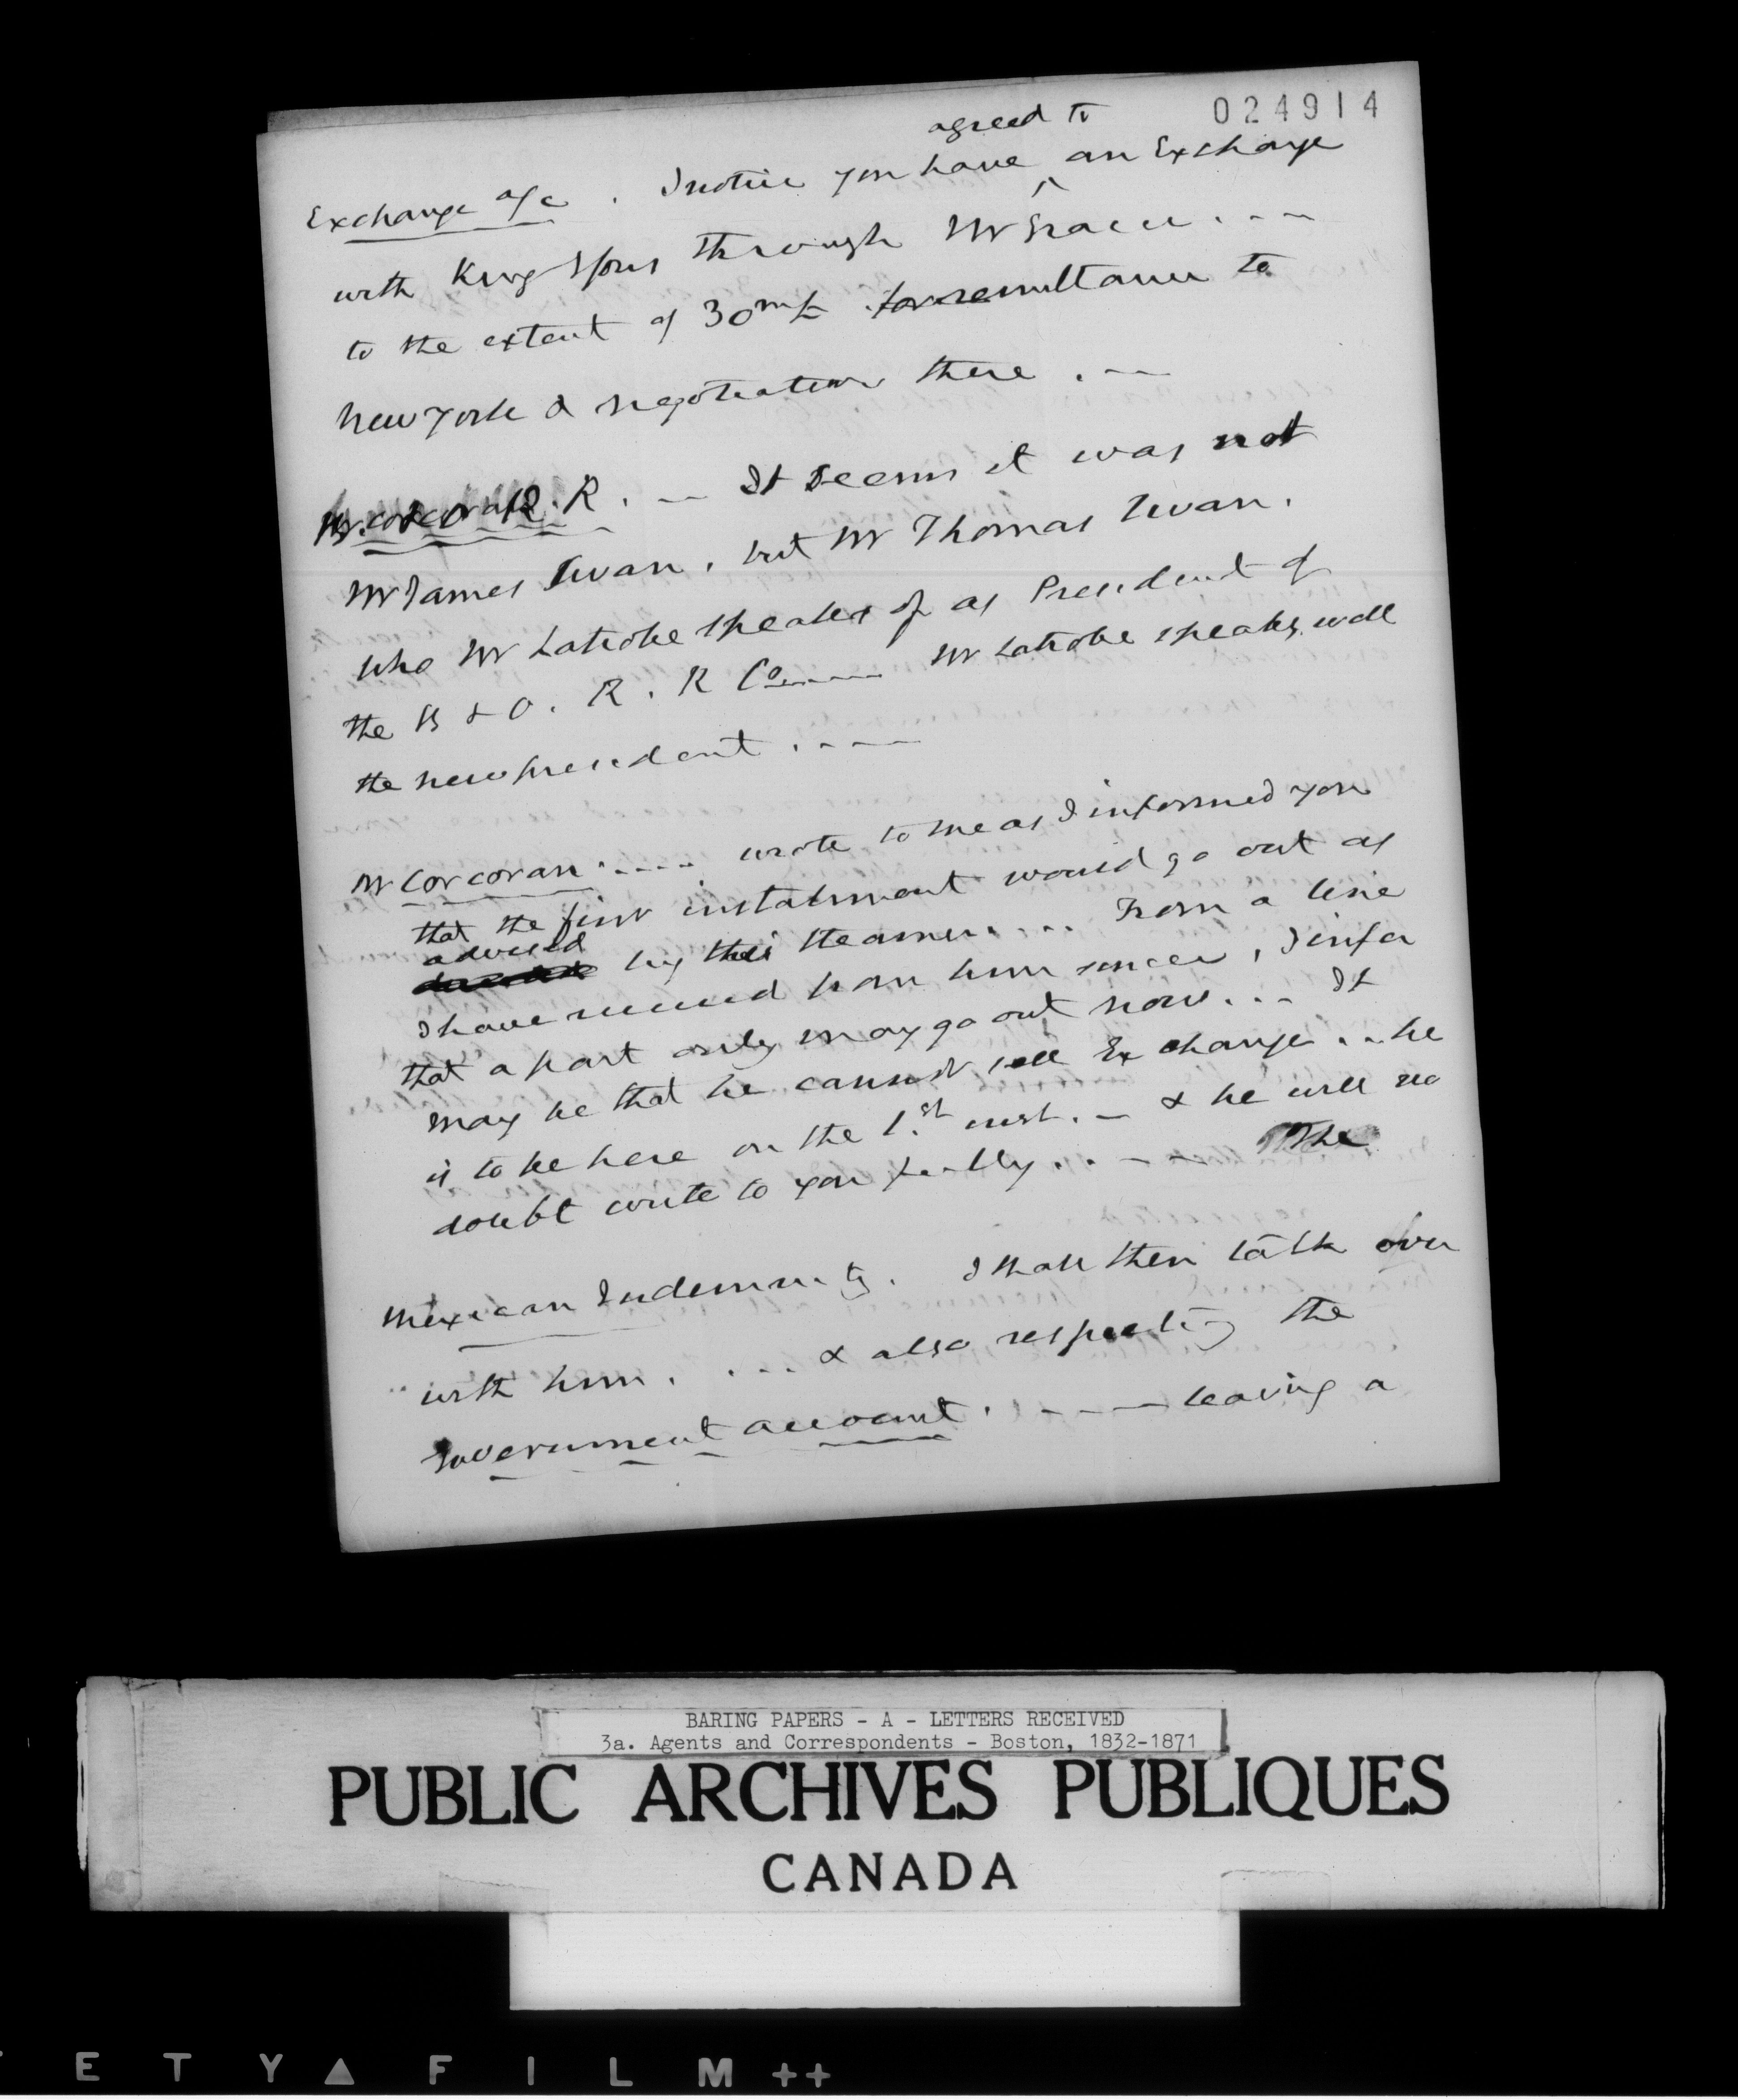 024914
agreed to
Exchange a/c . I notice you have ^ an Exchange
with King & Sons through Mr Grace . - -
to the extent of 30m£ for remittance to
New York & negotiation there . —
R. R. — It seems it was not
Mr James Swan, but Mr Thomas Swan.
who Mr Latrobe speaks of as President of
the B & O. R. R Co. --- Mr Latrobe speaks well
the new president . - - -
Mr Corcoran . - - - . wrote to me as I informed you
that the first instalment would go out as
advised
by this steamer . . . . From a line
I have received from him since, I infer
that a part only may go out now . . - It
may be that he cannot sell Exchange . . he
is to be here on the 1st inst. - & he will no
doubt write to you fully . . - - The
Mexican Indemnity . I shall then talk over
with him . . . . & also respecting the
Government account . - - - leaving a
BARING PAPERS - A - LETTERS RECEIVED
3a. Agents and Correspondents - Boston, 1832-1871
PUBLIC ARCHIVES PUBLIQUES
CANADA
E T Y ▲ F I L M ++